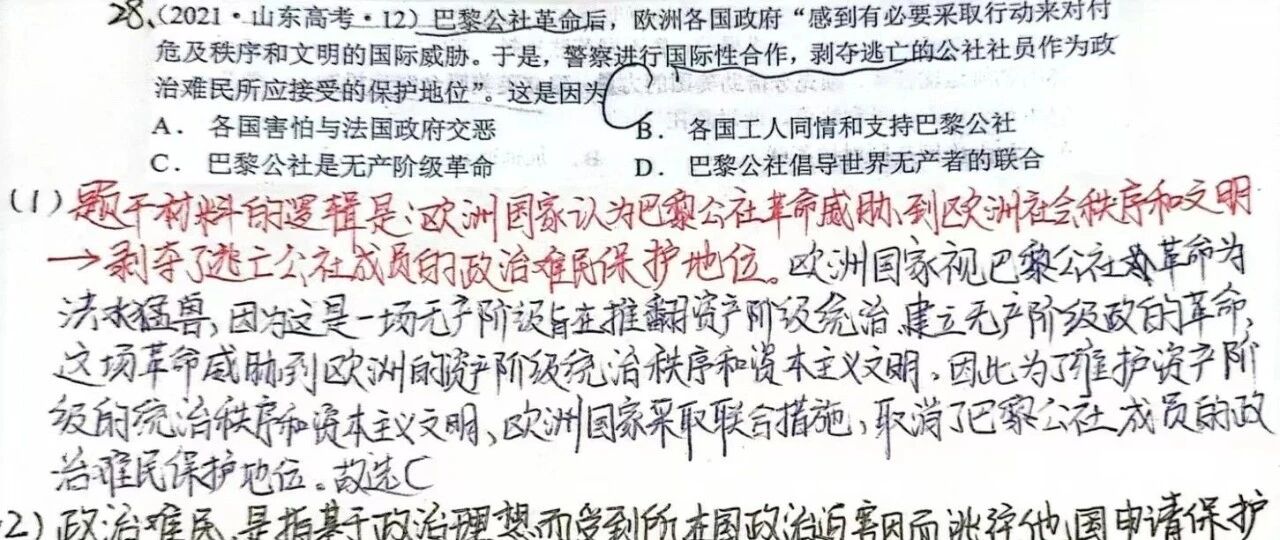 28、(2021·山东高考·12）巴黎公社革命后，欧洲各国政府“感到有必要采取行动来对付
危及秩序和文明的国际威胁。于是，警察进行国际性合作，剥夺逃亡的公社社员作为政
治难民所应接受的保护地位”。这是因为
A． 各国害怕与法国政府交恶 B． 各国工人同情和支持巴黎公社
C． 巴黎公社是无产阶级革命 D． 巴黎公社倡导世界无产者的联合
(1) 题干材料的逻辑是：欧洲国家认为巴黎公社革命威胁到欧洲社会秩序和文明
→剥夺了逃亡公社成员的政治难民保护地位。欧洲国家视巴黎公社革命为
洪水猛兽，因为这是一场无产阶级旨在推翻资产阶级统治、建立无产阶级政的革命，
这场革命威胁到欧洲的资产阶级统治秩序和资本主义文明。因此为了维护资产阶
级的统治秩序和资本主义文明、欧洲国家采取联合措施，取消了巴黎公社成员的政
治难民保护地位。故选C
2) 政治难民，是指基于政治理想而受到所在国政治迫害因而逃往他国申请保护